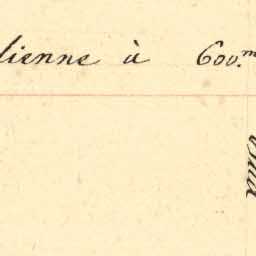 lienne à 600.m